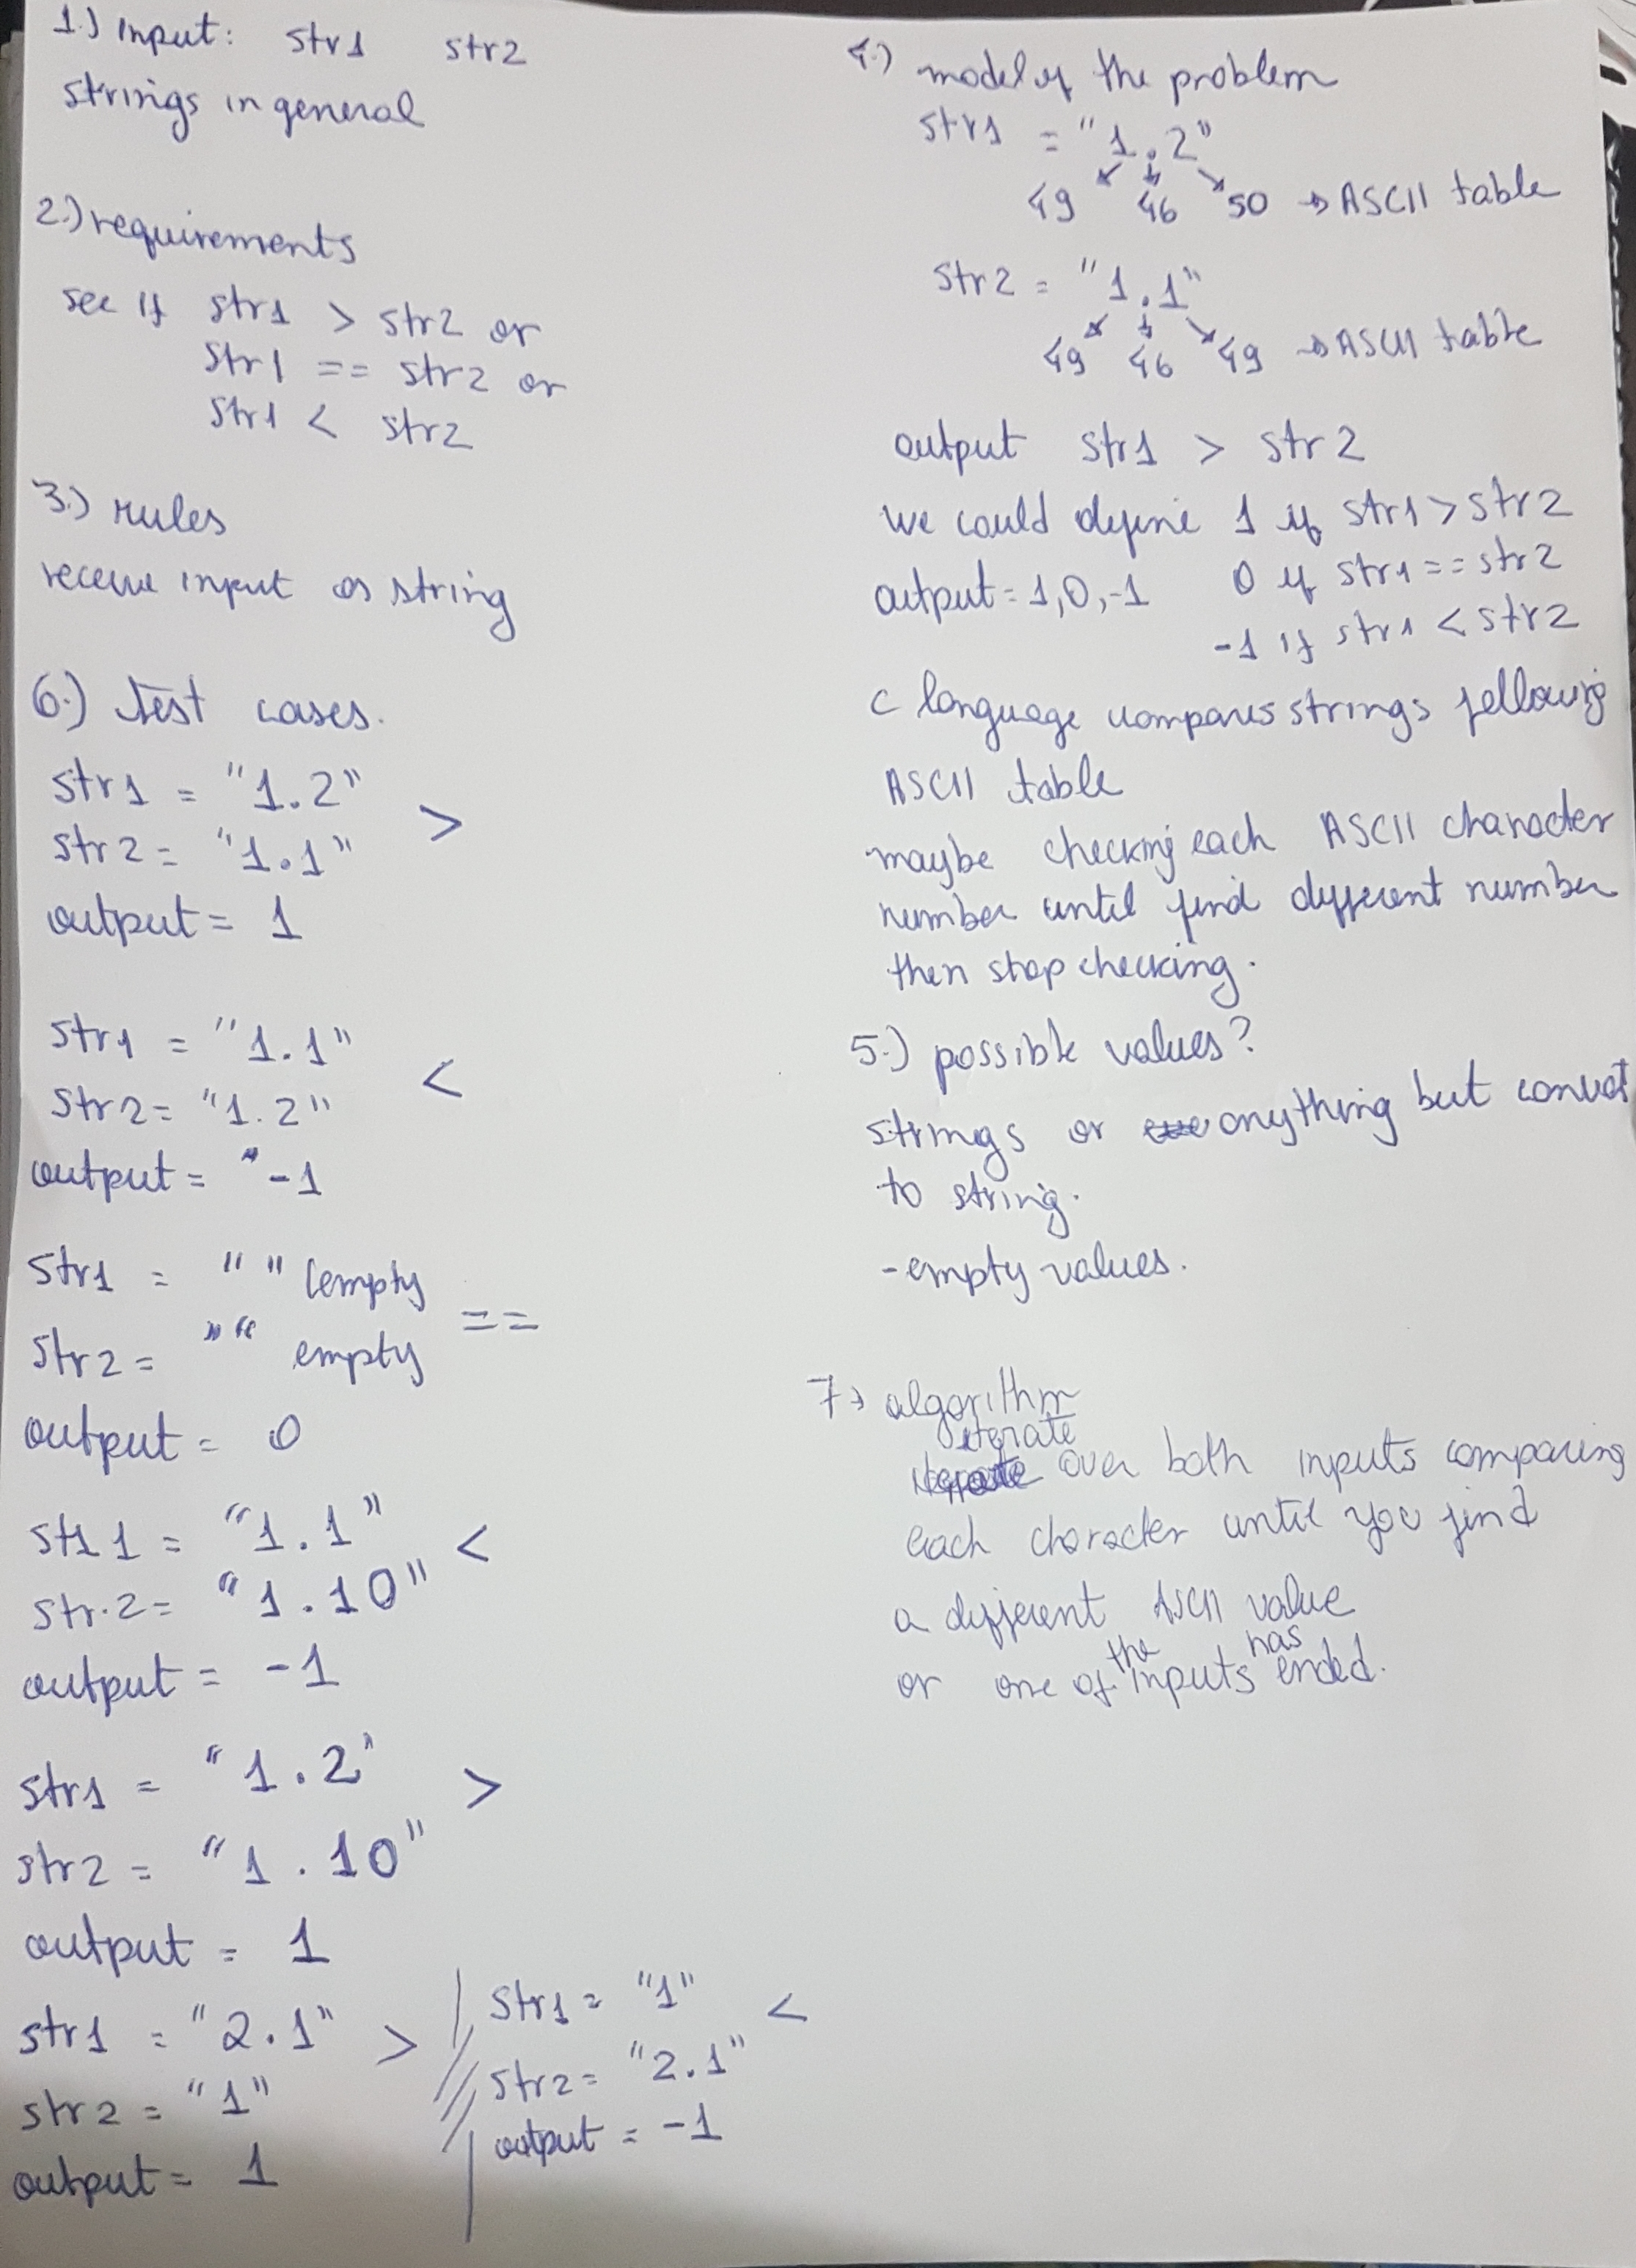 1.) Input: str1 str2
strings in general
2.) requirements
see if str1 > str2 or
str1 == str2 or
str1 < str2
3.) rules
receive input as string
6.) test cases.
str1 = "1.2"
>
str2 = "1.1"
output = 1
str1 = "1.1"
<
str2 = "1.2"
output = -1
str1 = " " (empty
==
str2 = "" empty
output = 0
str1 = "1.1"
<
str.2 = "1.10"
output = -1
str1 = "1.2"
>
str2 = "1.10"
output = 1
str1 = "2.1" >
str2 = "1"
output = 1
str1 = "1" <
str2 = "2.1"
output = -1
4.) model of the problem
str1 = "1.2"
49 46 50 → ASCII table
str2 = "1.1"
49 46 49 → ASCII table
output str1 > str2
we could define 1 if str1 > str2
output = 1,0,-1 0 if str1 == str2
-1 if str1 < str2
C language compares strings following
ASCII table
maybe checking each ASCII character
number until find different number
then stop checking.
5.) possible values?
strings or anything but convert
to string.
- empty values.
7) algorithm
iterate
over both inputs comparing
each character until you find
a different ASCII value
or one of the inputs has ended.